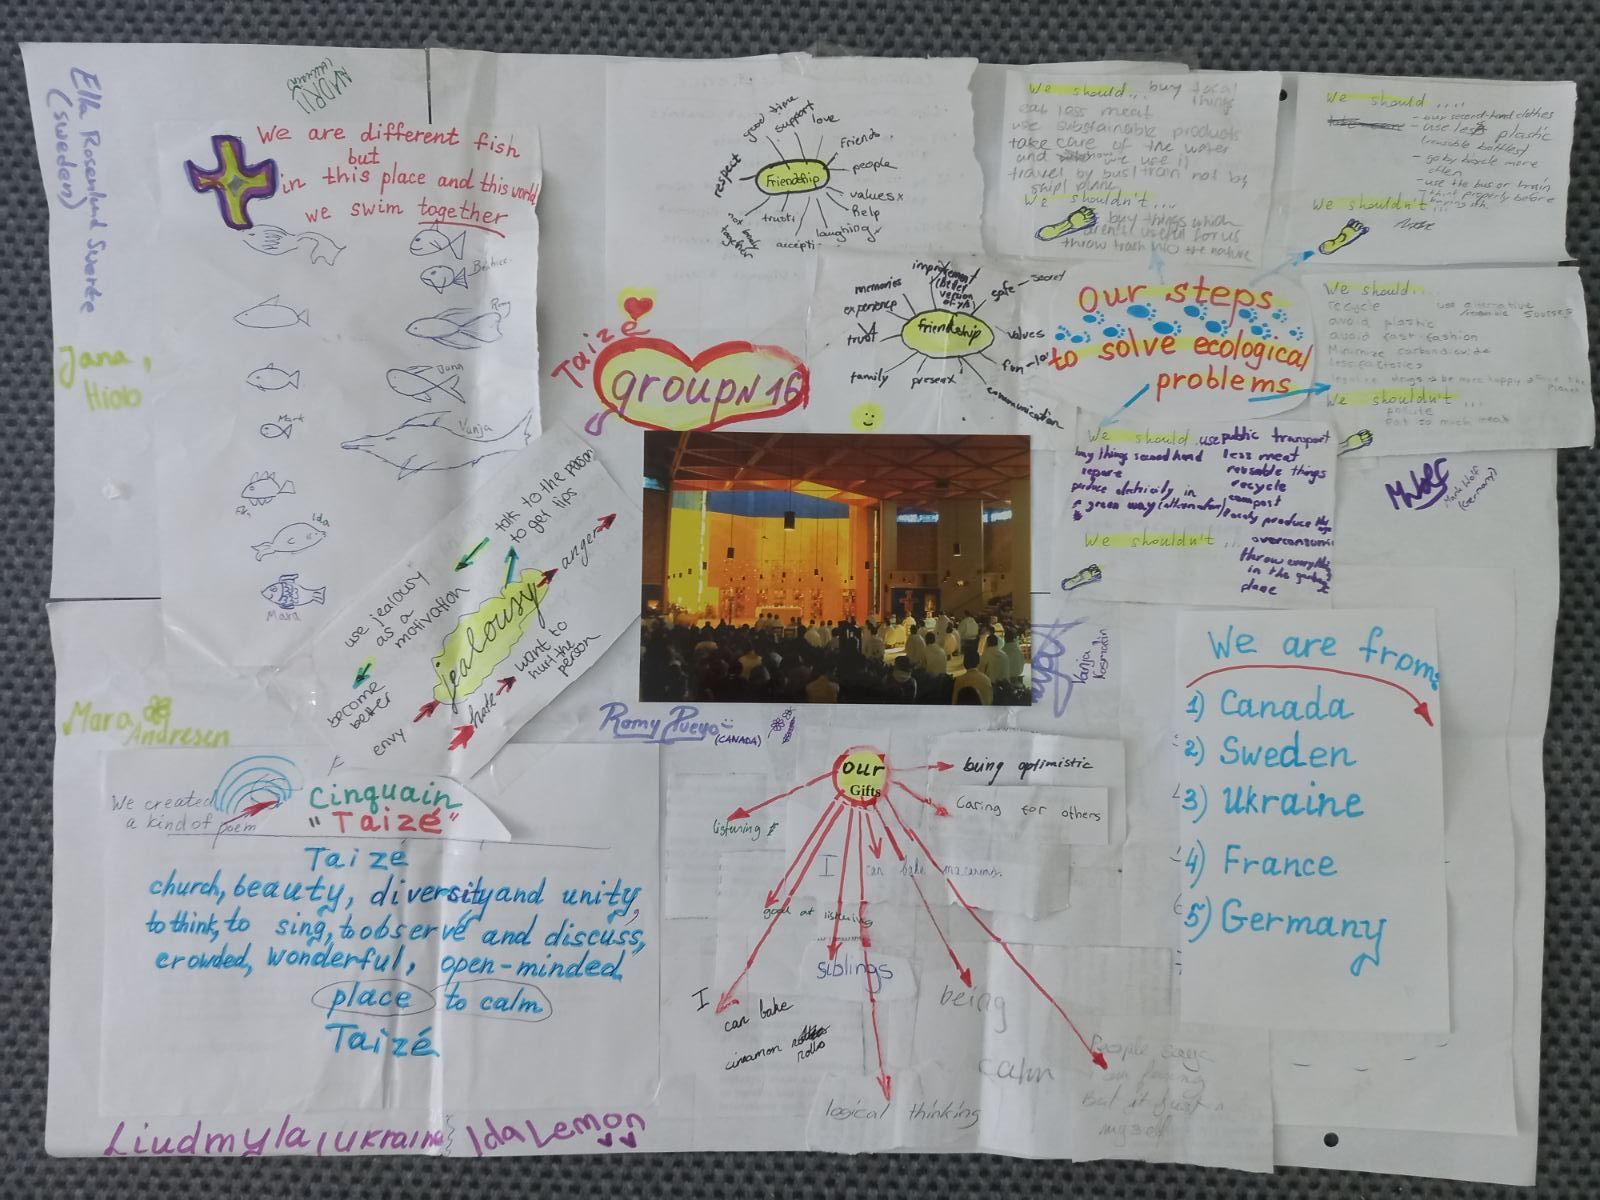 Ella Rosenlund Swerte
(Sweden)
We are different fish
but
in this place and this world
we swim together
Beatrice
Romy
Jana
Mark
Vanja
Ida
Mara
Jana,
Hiob
good time
support
love
Friends
people
values
help
laughing
accepti
trust
respect
Friendship
improvement
(better
version
of ys)
safe
secret
values
communication
present
family
trust
experience
memories
friendship
Taizé
group N 16
We should... buy local
things
eat less meat
use substainable products
take care of the water
and we use it
travel by bus/train not by
ship/plane
We shouldn't...
buy things which
aren't useful for us
throw trash into the nature
We should....
- our second-hand clothes
- use less plastic
(reusable bottles)
- go by bicycle more
often
- use the bus or train
- think properly before
buying sth.
We shouldn't
...
Our steps
to solve ecological
problems
We should...
recycle
use alternative
avoid plastic
avoid fast-fashion
Minimize carbondioxide
less factories
We shouldn't...
pollute
Eat so much meat
We should use public transport
buy things second hand
less meat
repare
reusable things
recycle
produce electricity in
compost
green way (alternative)
We shouldn't...
overconsume
throw everything
in the garbage
plane
MWolf
Mark Wolf
(Germany)
talk to the person
to get tips
use jealousy
as a
motivation
become
better
jealousy
anger
want to
hurt the
person
hate
envy
Mara
Andresen
Romy Pueyo
(CANADA)
Vanja
Kosmakin
We are from:
1) Canada
2) Sweden
3) Ukraine
4) France
5) Germany
We created
a kind of poem
Cinquain
"Taizé"
Taizé
church, beauty, diversity and unity,
to think, to sing, to observe and discuss,
crowded, wonderful, open-minded
place to calm
Taizé
our
Gifts
being optimistic
Caring for others
listening
I can bake macarons.
good at listening
siblings
I
can bake
cinamon
rolls
being
calm
logical thinking
People say
But it just
myself
Liudmyla, Ukraine
Ida Lemon